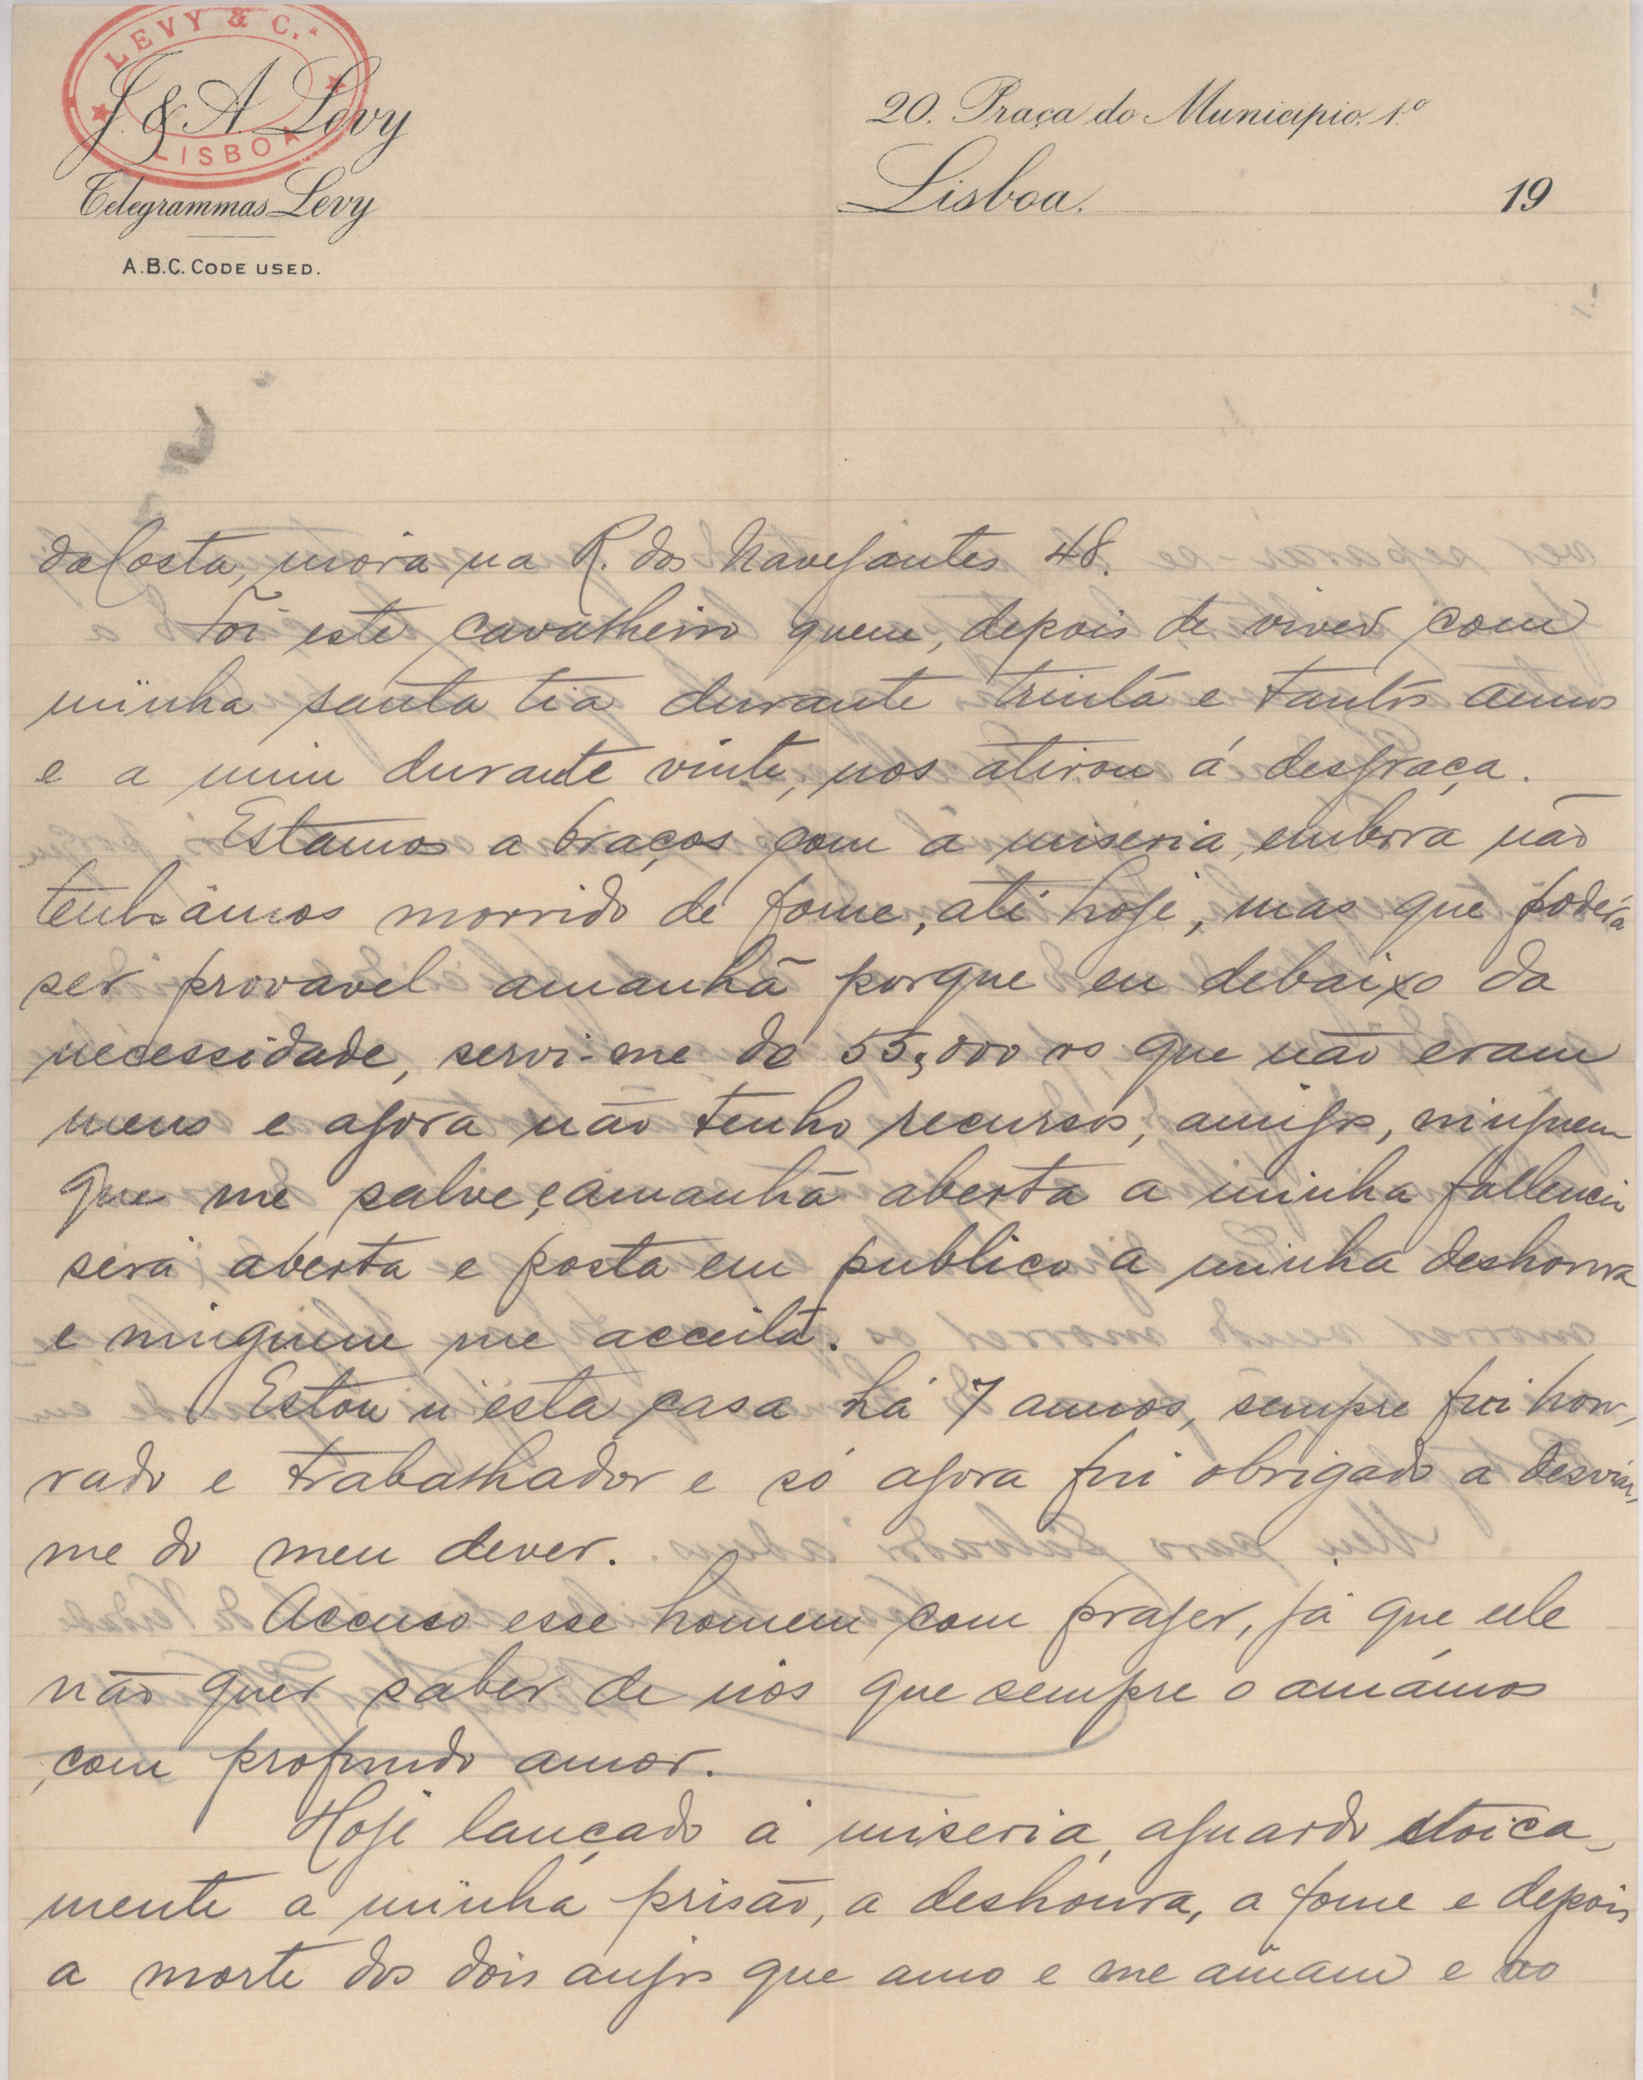 LEVY & C.ª
LISBOA
J. & A. Levy
Telegrammas Levy
A.B.C. CODE USED.
20. Praça do Municipio. 1.º
Lisboa. 19
da Costa, mora na R. dos Navegantes 48.
Foi este cavalheiro quem, depois de viver com
minha santa tia durante trinta e tantos annos
e a mim durante vinte, nos atirou á desgraça.
Estamos a braços com a miseria, embora não
tenhâmos morrido de fome, até hoje, mas que poderá
ser provavel amanhã porque eu debaixo da
necessidade, servi-me de 55,000 rs que não eram
meus e agora não tenho recursos, amigos, ninguem
que me salve, e amanhã aberta a minha fallencia
será aberta e posta em publico a minha deshonra
e ninguem me acceita.
Estou n'esta casa há 7 annos, sempre fui hon-
rado e trabalhador e só agora fui obrigado a desviar-
me do meu dever.
Accuso esse homem com praser, já que elle
não quer saber de nós que sempre o amámos
com profundo amor.
Hoje lançado á miseria, aguardo stoica-
mente a minha prisão, a deshonra, a fome e depois
a morte dos dois anjos que amo e me amam e ao